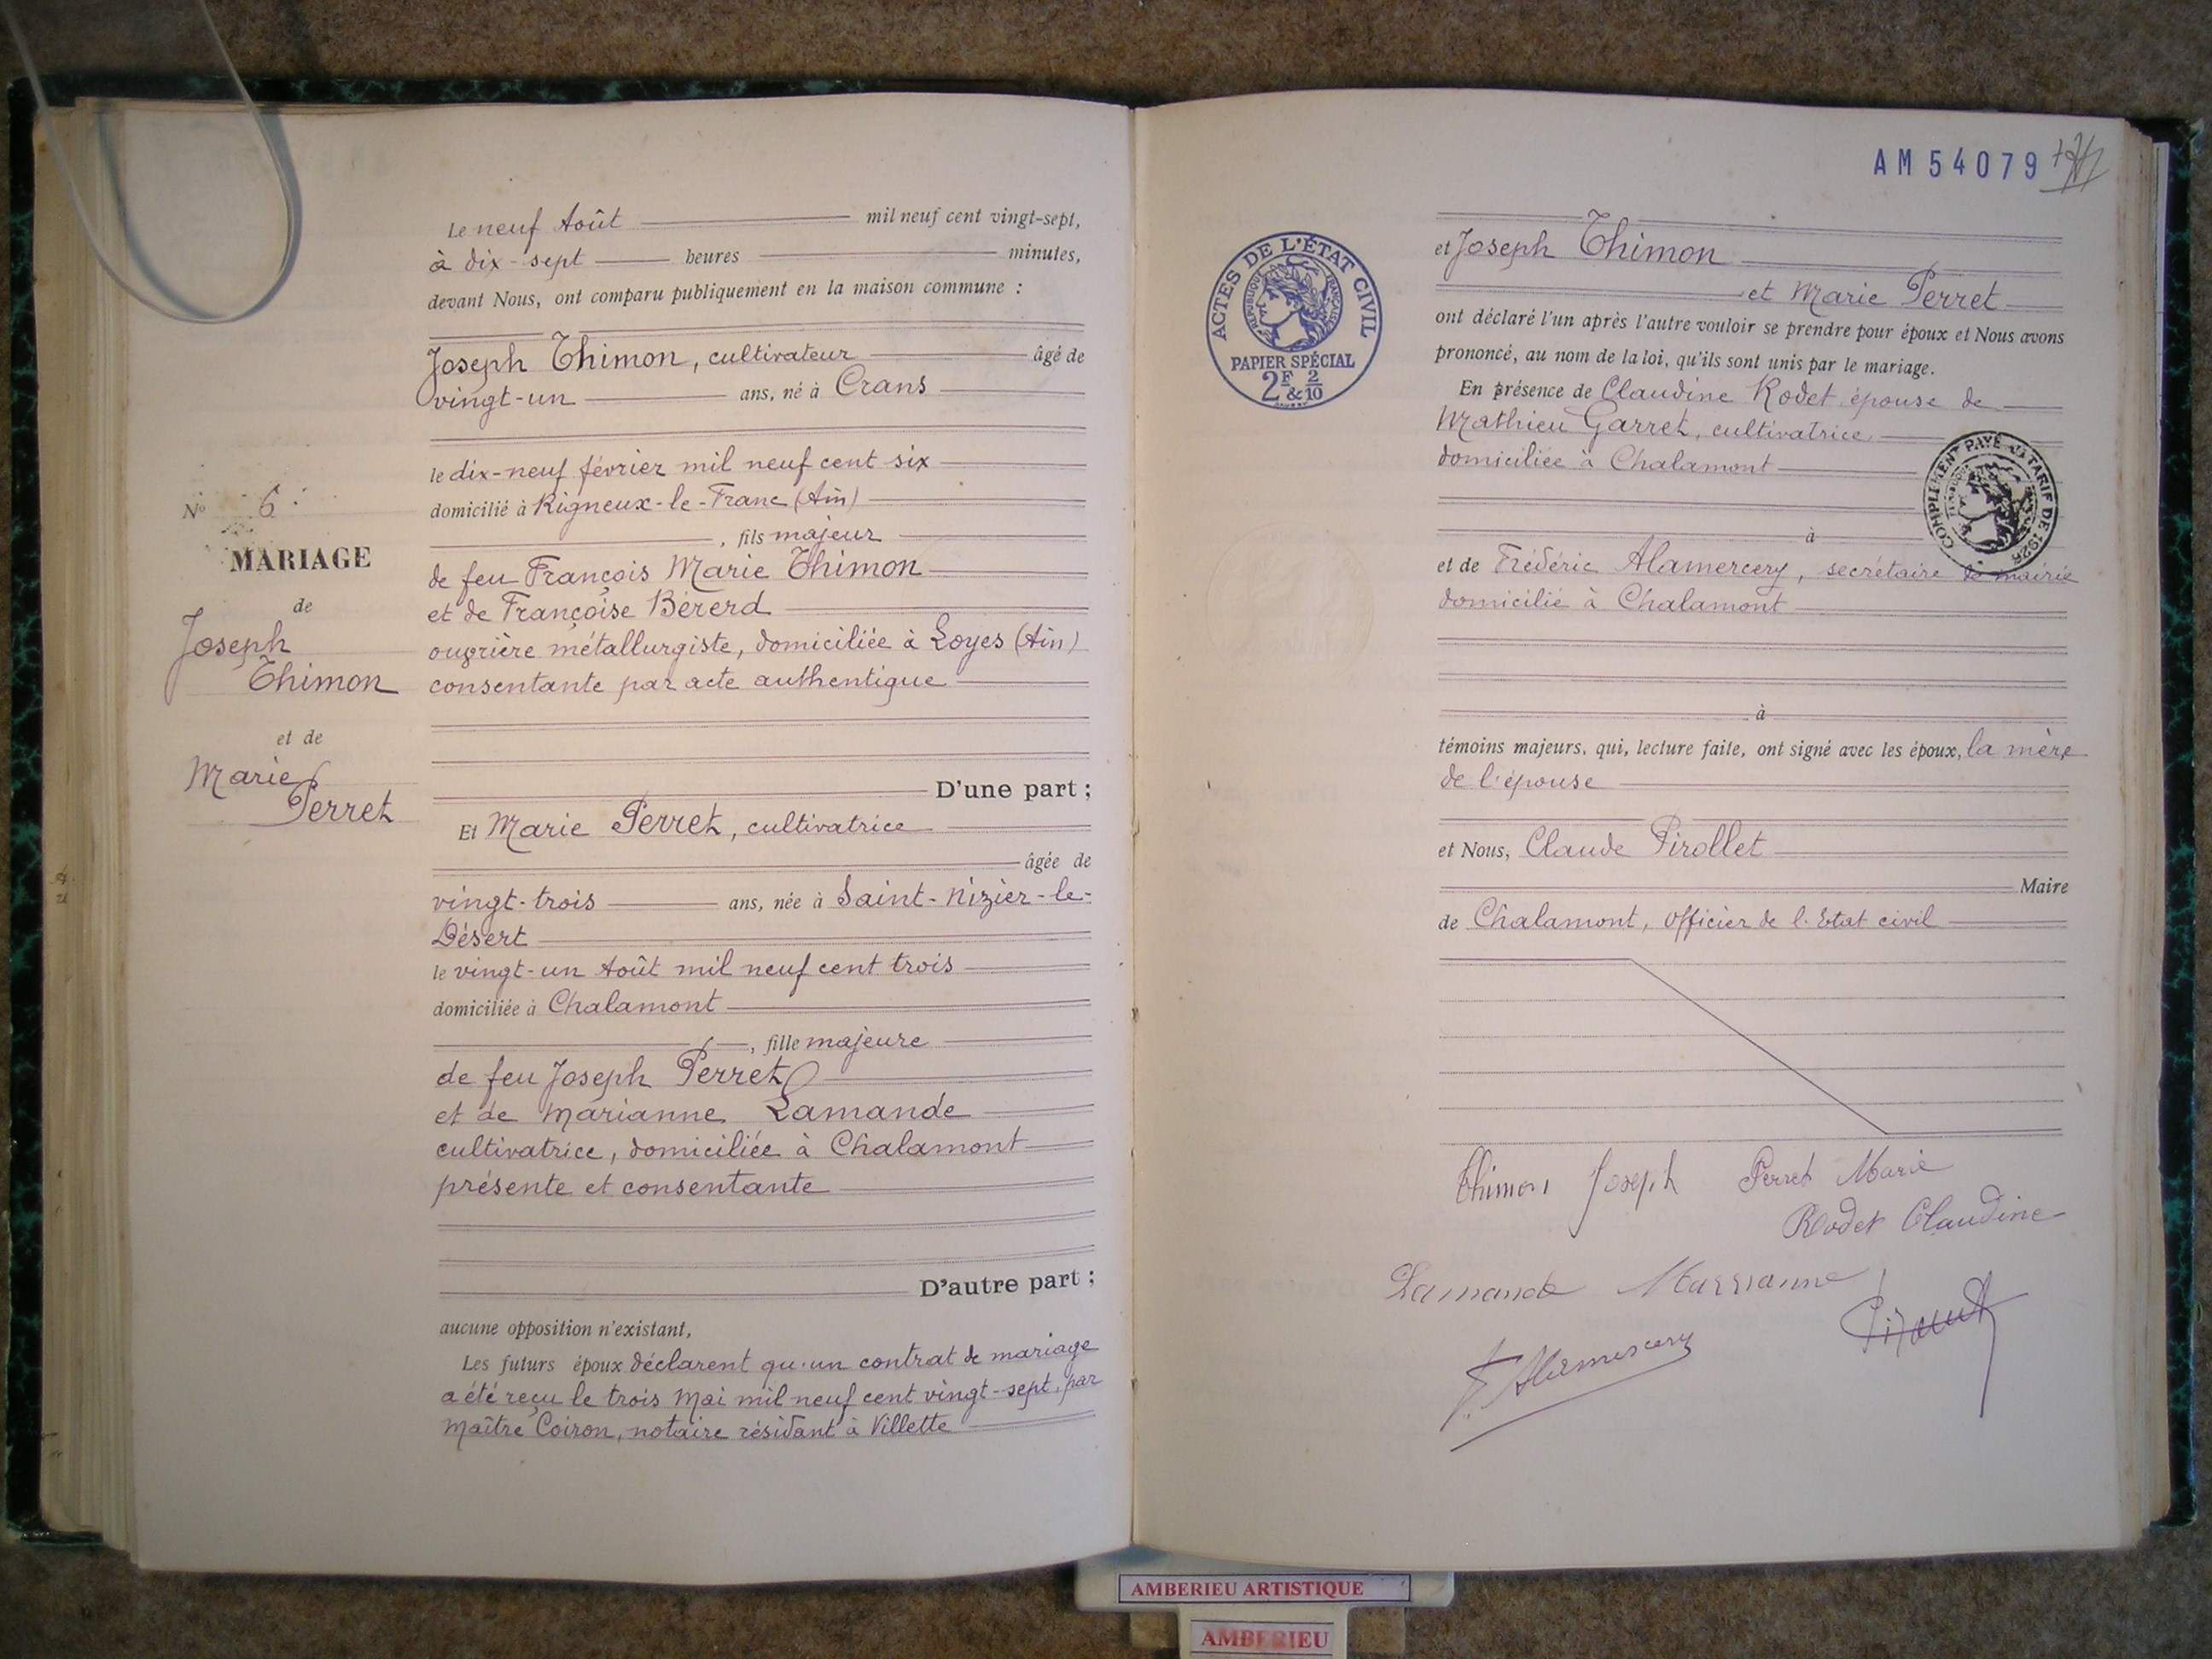 Le neuf Août mil neuf cent vingt-sept,
à dix-sept heures minutes,
devant Nous, ont comparu publiquement en la maison commune :
Joseph Thimon, cultivateur âgé de
vingt-un ans, né à Crans
le dix-neuf février mil neuf cent six
domicilié à Rigneux-le-Franc (Ain)
, fils majeur
de feu François Marie Thimon
et de Françoise Bérerd
ouvrière métallurgiste, domiciliée à Loyes (Ain)
consentante par acte authentique
D'une part ;
Et Marie Perret, cultivatrice
âgée de
vingt-trois ans, née à Saint-Nizier-le-
Désert
le vingt-un Août mil neuf cent trois
domiciliée à Chalamont
, fille majeure
de feu Joseph Perret
et de Marianne Lamande
cultivatrice, domiciliée à Chalamont
présente et consentante
D'autre part ;
aucune opposition n'existant,
Les futurs époux déclarent qu'un contrat de mariage
a été reçu le trois Mai mil neuf cent vingt-sept, par
Maître Coiron, notaire résidant à Villette
N° 6
MARIAGE
de
Joseph
Thimon
et de
Marie
Perret
AM 54079
ACTES DE L'ÉTAT CIVIL
RÉPUBLIQUE FRANÇAISE
PAPIER SPÉCIAL
2F & 2/10
et Joseph Thimon
et Marie Perret
ont déclaré l'un après l'autre vouloir se prendre pour époux et Nous avons
prononcé, au nom de la loi, qu'ils sont unis par le mariage.
En présence de Claudine Rodet épouse de
Mathieu Garret, cultivatrice
domiciliée à Chalamont
COMPLÉMENT PAYÉ AU TARIF DE 1925
à
et de Frédéric Alamercery, secrétaire de mairie
domicilié à Chalamont
à
témoins majeurs, qui, lecture faite, ont signé avec les époux, la mère
de l'épouse
et Nous, Claude Pirollet
Maire
de Chalamont, officier de l'Etat civil
Thimon Joseph Perret Marie
Rodet Claudine
Lamande Marrianne
F. Alamercery
AMBERIEU ARTISTIQUE
AMBERIEU